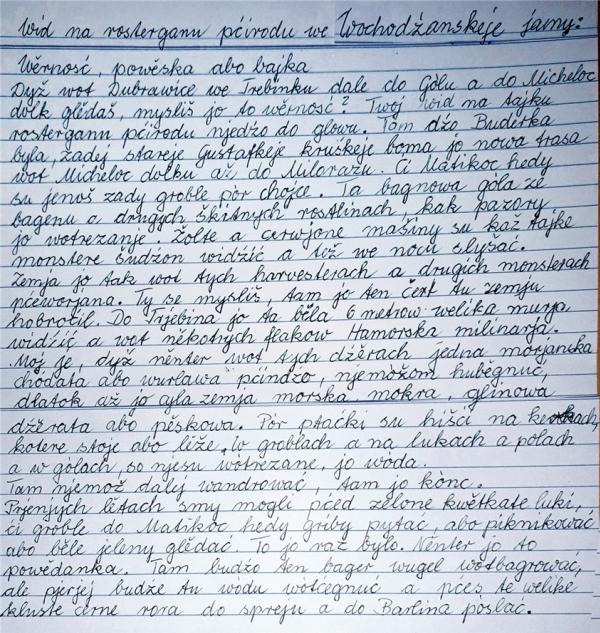 Wid na rosterganu pćirodu we Wochodźanskeje jamy:
Wěrnosć, powěska abo bajka
Dyž wot Dubrawice we Trebinku dale do Gólu a do Micheloc
dołk glědaš, mysliš jo to wěrnosć? Twoj wid na tajku
rosterganu pćirodu njedźo do glowu. Tam dźo Buderka
była, zadej stareje Gustafkeje kruškeje boma jo nowa trasa
wot Micheloc dołku až do Milorazu. Ci Matikoc hedy
su jenož zady groble pór chojce. Ta bagnowa góla ze
bagenu a drugych škitnych rostlinach, kak pazory
jo wotrezanje. Žolte a cerwjone mašiny su kaž tajke
monstere sudzon widźić a tež we nocu slyšać.
Zemja jo tak wot tych harvesterach a drugich monsterach
pćeworjana. Ty se mysliš, tam jo ten čert tu zemju
hobrośił. Do Trjebina jo ta běla 6 metrow welika murja
widźić a wot někotrych flakow Hamorska milinarja.
Moj je, dyž nenter wot tych dźěrach jedna morjanska
chódata abo wurlawa pćindźo, njemóžom huběgnuć,
dłatok až jo cyla zemja morska mokra, glinowa
dźěrata abo pěskowa. Pór ptaćki su hišći na kerkach,
kotere stoje abo lěže. W groblach a na lukach a polach
a w golach, so njesu wotrezane, jo wóda.
Tam njemož dalej wandrować, tam jo kónc.
Prjenjych lětach smy mogli pćed zelone kwětkate luki,
ći groble do Matikoc hedy griby pytać, abo piknikować
abo běle jeleny glědać. To jo raz bylo. Něnter jo to
powědanka. Tam budźo ten bager wugel wotbagrować,
ale pjerjej budźe tu wodu wotcegnuć a pćes te welike
kluste ćerne rora do spreju a do Barlina póslać.